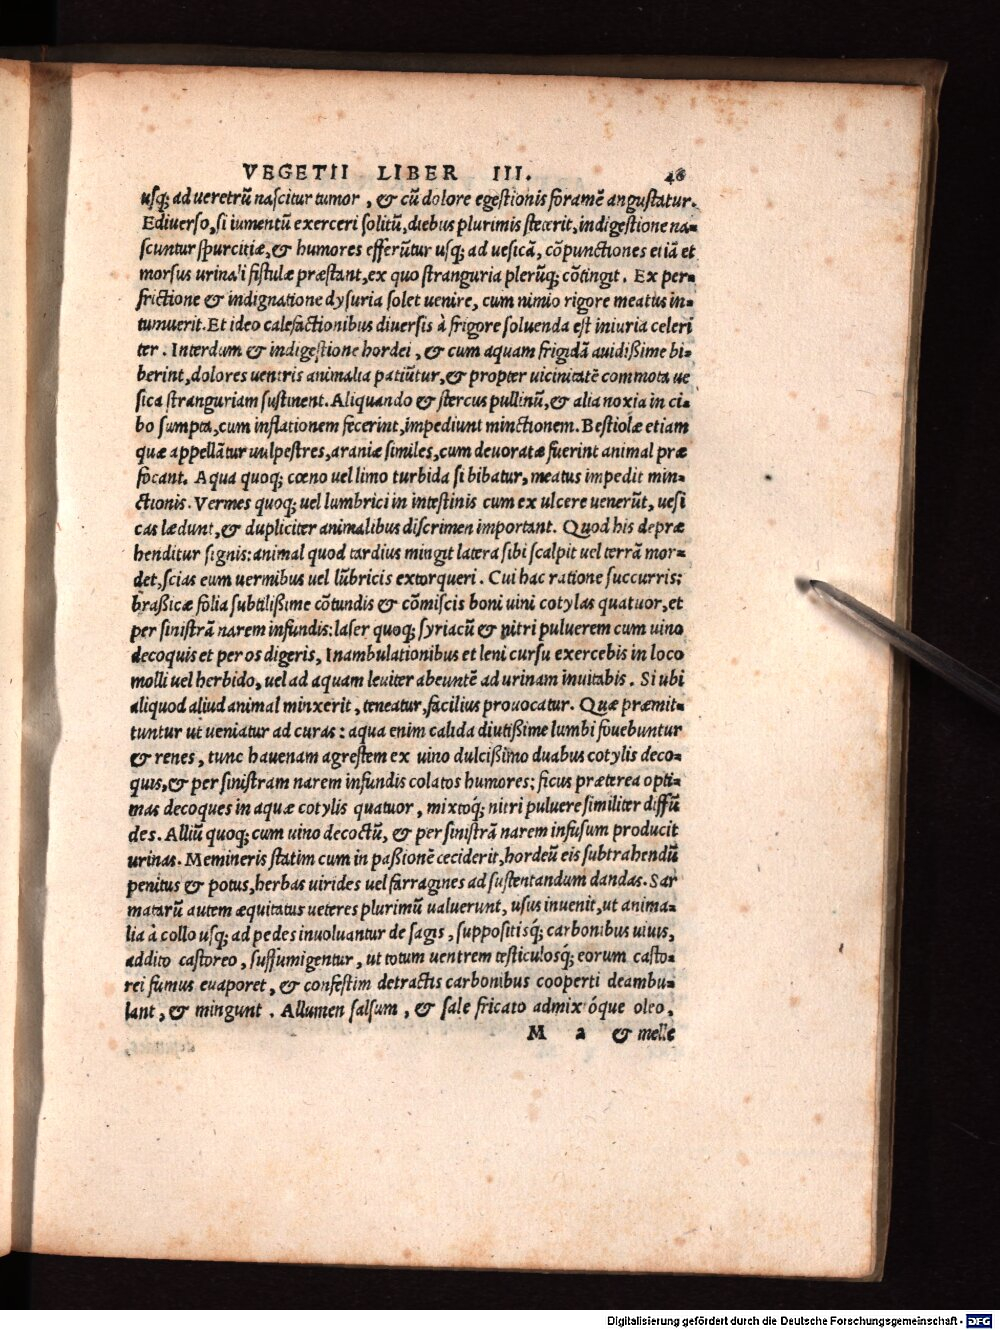 VEGETII LIBER III. 46
usq; ad ueretrũ nascitur tumor, & cũ dolore egestionis foramẽ angustatur.
Ediuerso, si iumentũ exerceri solitũ, diebus plurimis steterit, indigestione na-
scuntur spurcitiæ, & humores efferũtur usq; ad uesicã, cõpunctiones etiã et
morsus urinali fistulæ præstant, ex quo stranguria plerũq; cõtingit. Ex per-
frictione & indignatione dysuria solet uenire, cum nimio rigore meatus in-
tumuerit. Et ideo calefactionibus diuersis à frigore soluenda est iniuria celeri
ter. Interdum & indigestione hordei, & cum aquam frigidã auidißime bi-
berint, dolores uentris animalia patiũtur, & propter uicinitatẽ commota ue
sica stranguriam sustinent. Aliquando & stercus pullinũ, & alia noxia in ci-
bo sumpta, cum inflationem fecerint, impediunt minctionem. Bestiolæ etiam
quæ appellãtur uulpestres, araniæ similes, cum deuoratæ fuerint animal præ
focant. Aqua quoq; cœno uel limo turbida si bibatur, meatus impedit min-
ctionis. Vermes quoq; uel lumbrici in intestinis cum ex ulcere uenerũt, uesi
cas lædunt, & dupliciter animalibus discrimen important. Quod his depræ
henditur signis: animal quod tardius mingit latera sibi scalpit uel terrã mor-
det, scias eum uermibus uel lũbricis extorqueri. Cui hac ratione succurris:
braßicæ folia subtilißime cõtundis & cõmiscis boni uini cotylas quatuor, et
per sinistrã narem infundis: laser quoq; syriacũ & nitri puluerem cum uino
decoquis et per os digeris, Inambulationibus et leni cursu exercebis in loco
molli uel herbido, uel ad aquam leuiter abeuntẽ ad urinam inuitabis. Si ubi
aliquod aliud animal minxerit, teneatur, facilius prouocatur. Quæ præmit-
tuntur ut ueniatur ad curas: aqua enim calida diutißime lumbi fouebuntur
& renes, tunc hauenam agrestem ex uino dulcißimo duabus cotylis deco-
quis, & per sinistram narem infundis colatos humores: ficus præterea opti-
mas decoques in aquæ cotylis quatuor, mixtoq́; nitri puluere similiter diffũ
des. Alliũ quoq; cum uino decoctũ, & per sinistrã narem infusum producit
urinas. Memineris statim cum in paßionẽ ceciderit, hordeũ eis subtrahendũ
penitus & potus, herbas uirides uel farragines ad sustentandum dandas. Sar
matarũ autem æquitatus ueteres plurimũ ualuerunt, usus inuenit, ut anima-
lia à collo usq; ad pedes inuoluantur de sagis, suppositisq́; carbonibus uiuis,
addito castoreo, suffumigentur, ut totum uentrem testiculosq́; eorum casto-
rei fumus euaporet, & confestim detractis carbonibus cooperti deambu-
lant, & mingunt. Allumen salsum, & sale fricato admixtóque oleo,
M a & melle
Digitalisierung gefördert durch die Deutsche Forschungsgemeinschaft - DFG